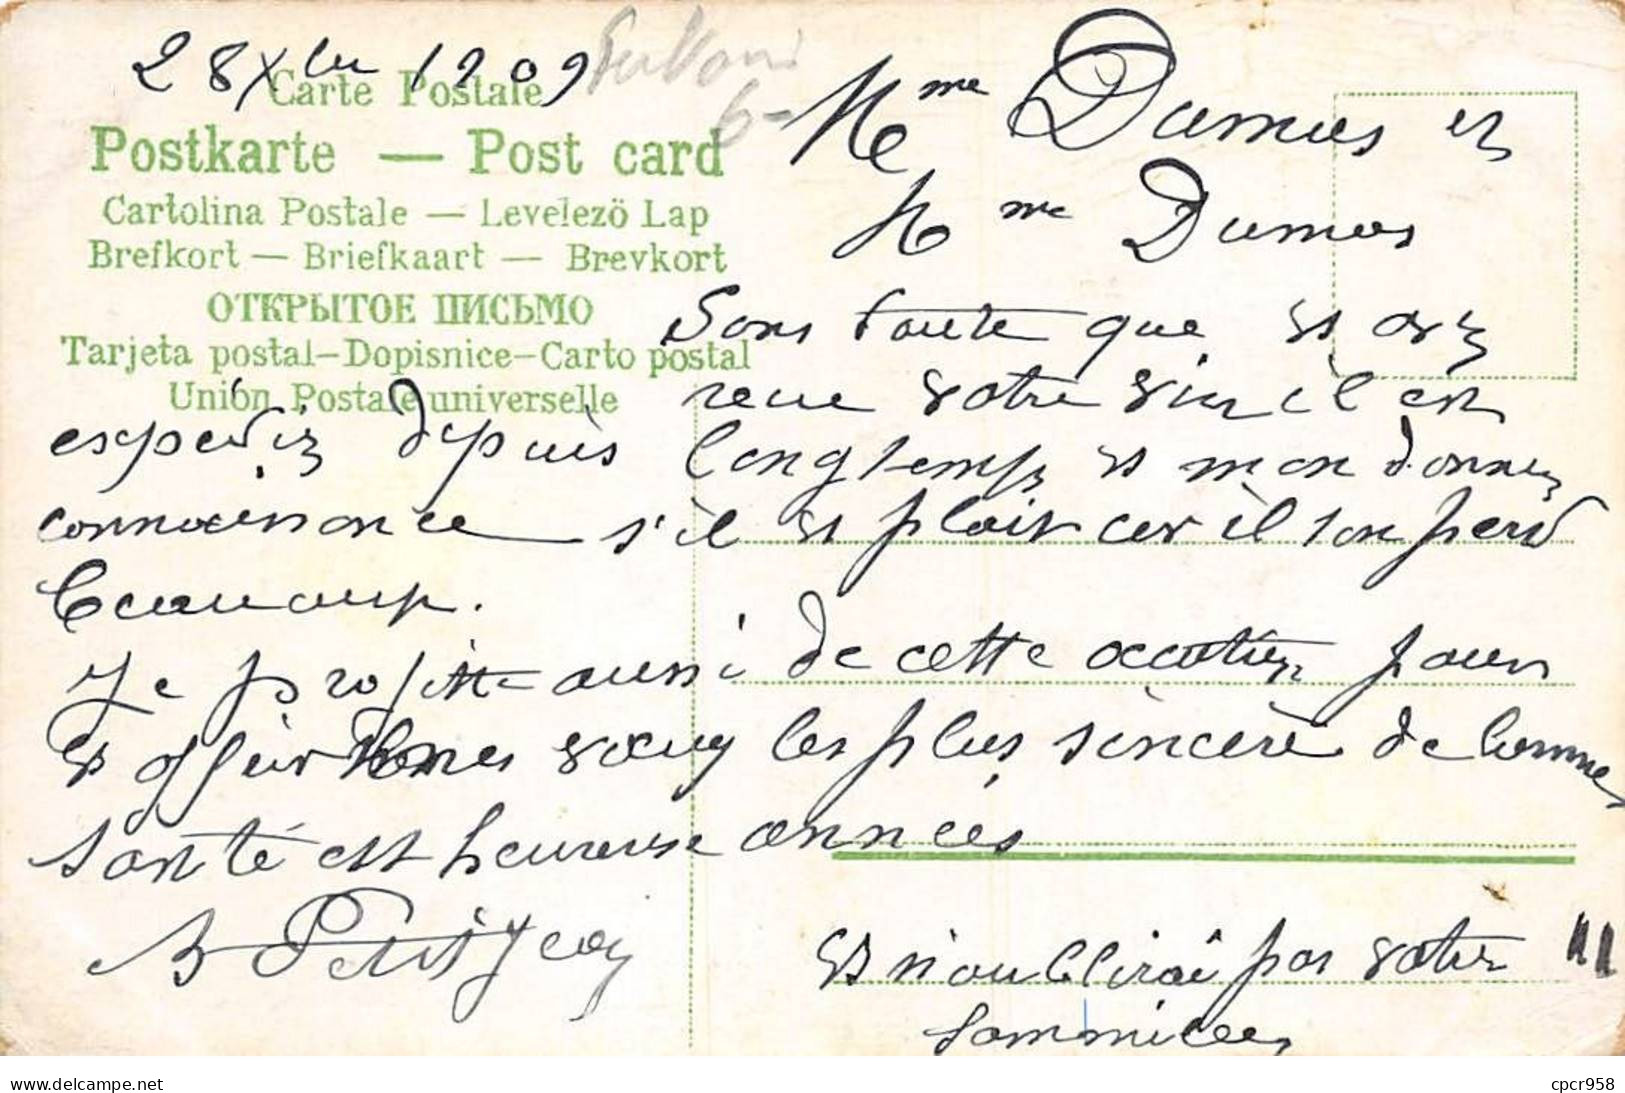 28 Xbre 1909
6-
Carte Postale
Postkarte — Post card
Cartolina Postale — Levelezö Lap
Brefkort — Briefkaart — Brevkort
ОТКРЫТОЕ ПИСЬМО
Tarjeta postal-Dopisnice-Carto postal
Unión Postale universelle
Mme Dumas et
Mme Dumas
Sans toute que vs avez
recue votre vin il est
expediez depuis longtemps vs man donnez
connaissance s'il vs plait car il san perd
beaucoup.
Je profitte aussi de cette pour
vs offrir mes vœux les plus sincère de bonnes
santé est heureuse années
Petitjean
vs n'oublirai pas votre